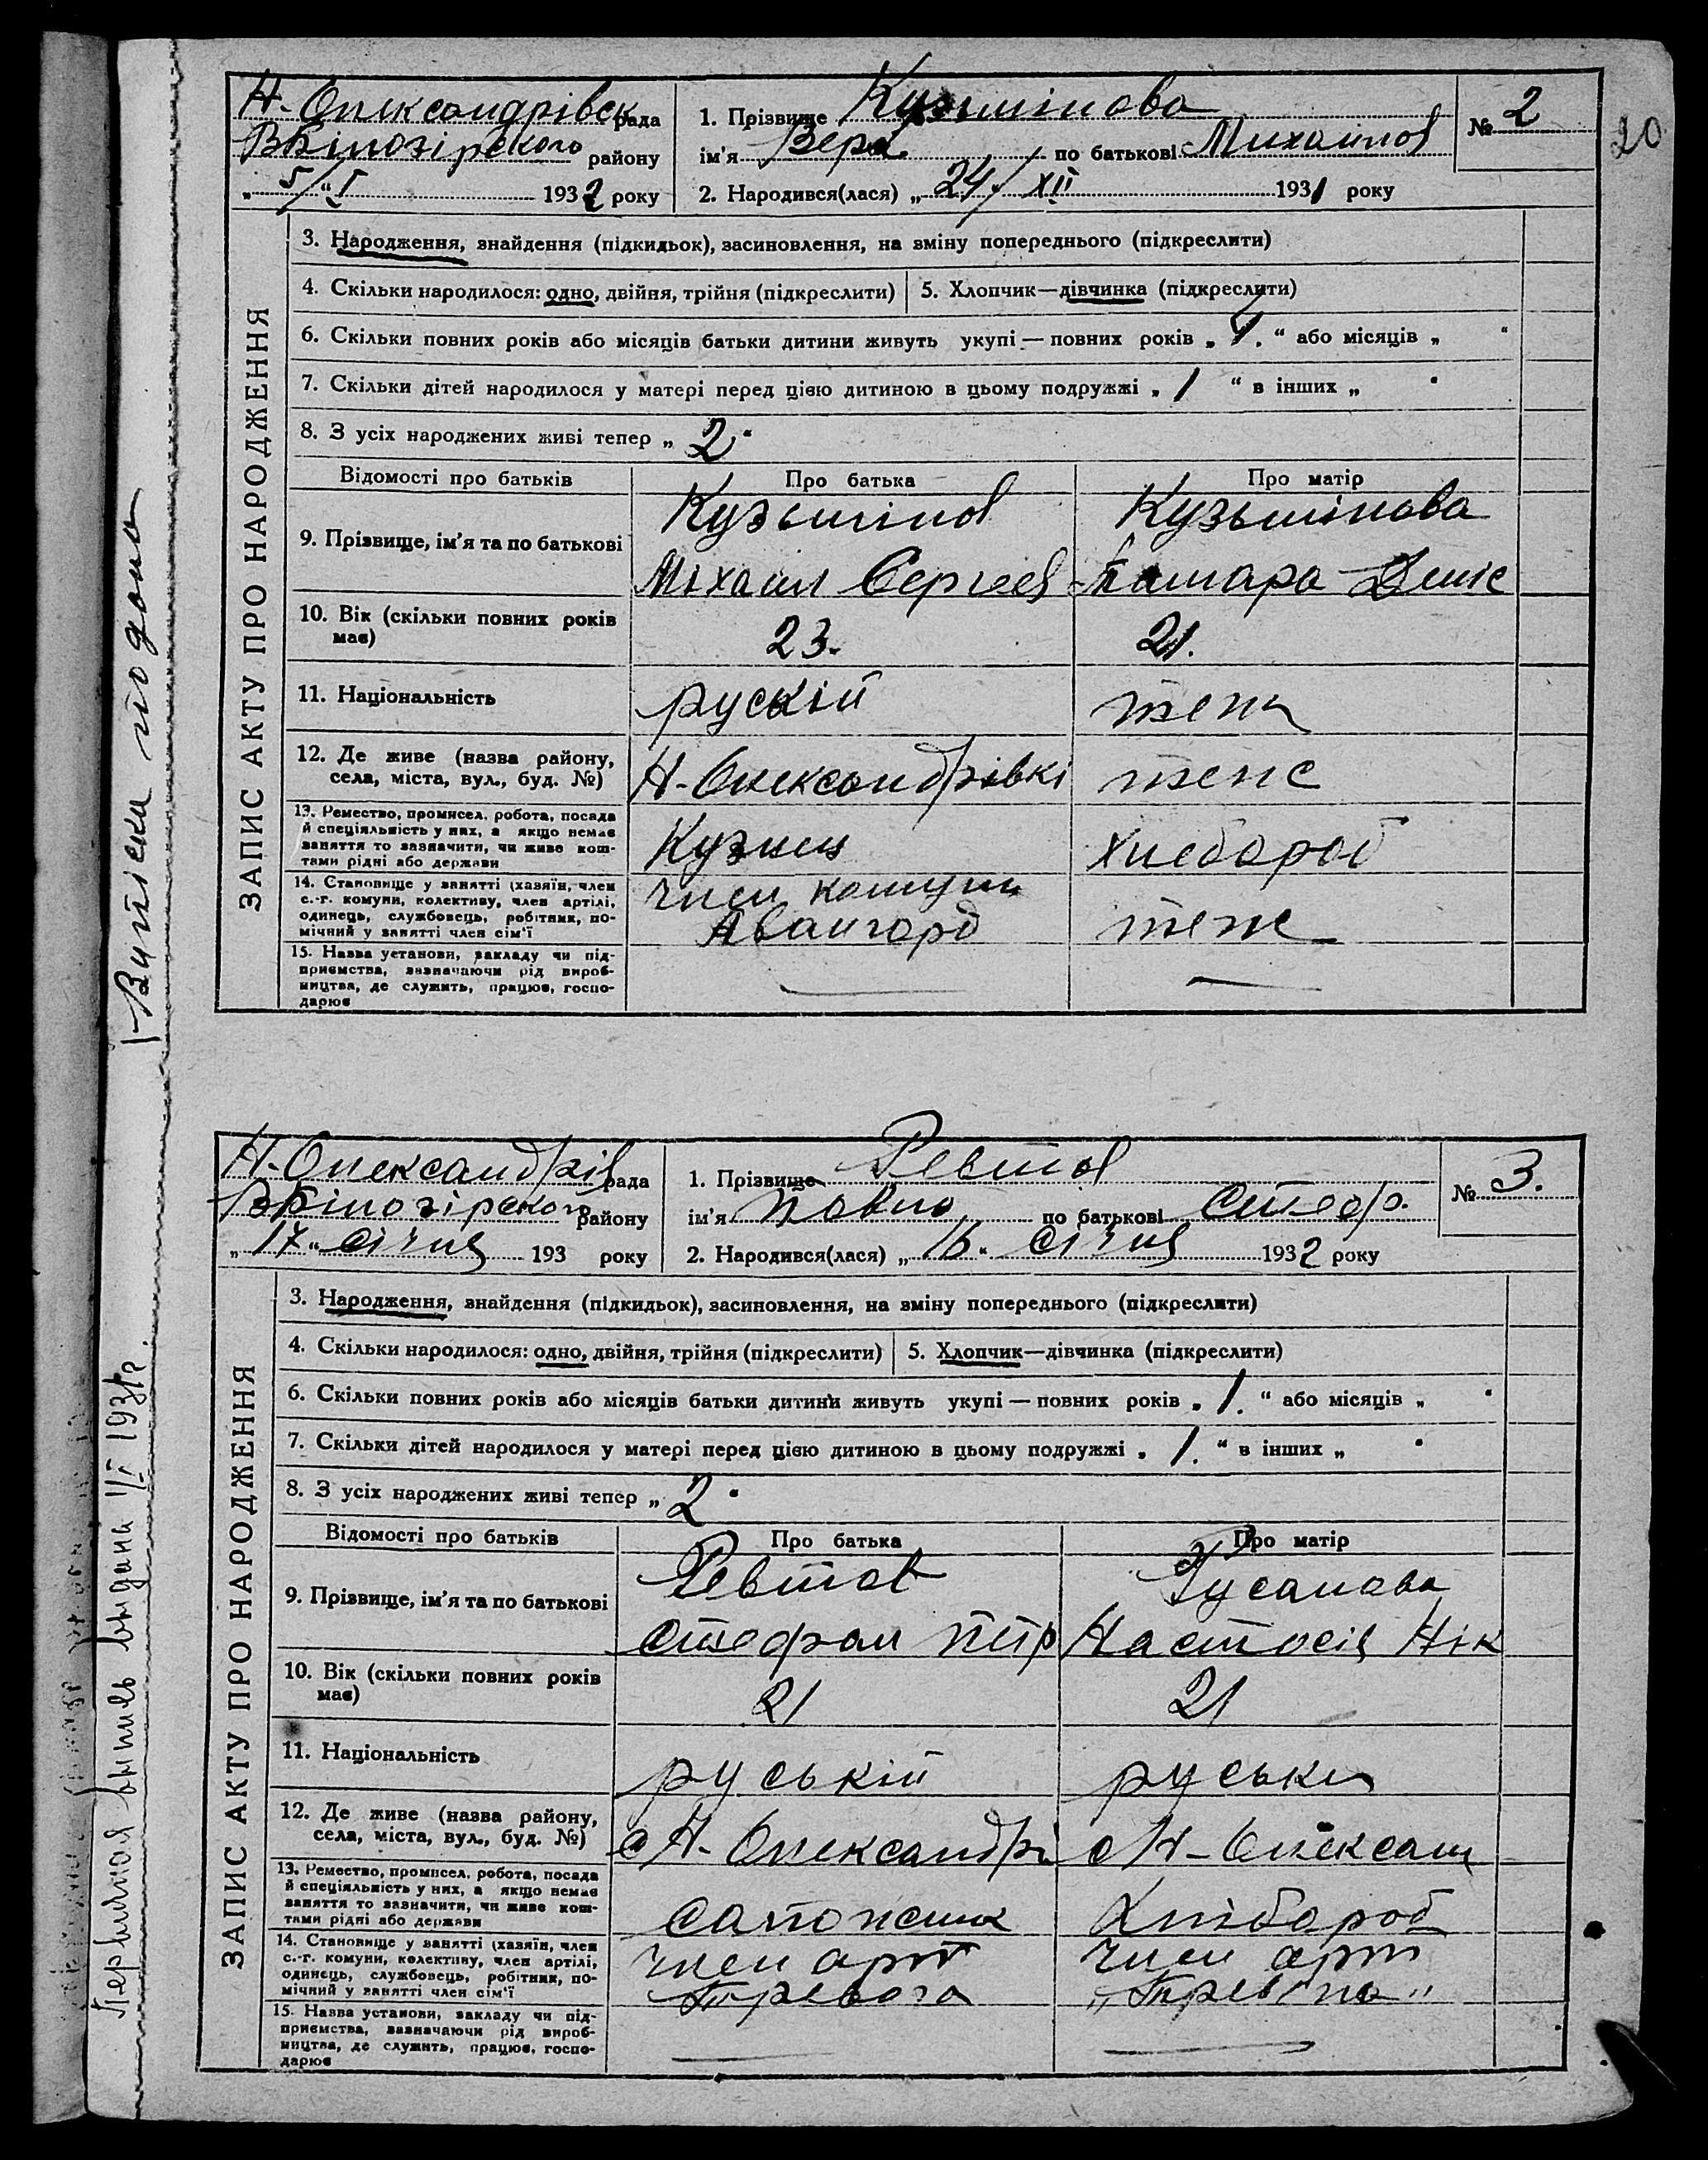 20
Н-Олександрівск рада
ВБілозірского району
„5/"I 1932 року
1. Прізвище Кузьмінова
ім'я Вера по батькові Михайлов
2. Народився(лася) „24/XII 1931 року
№ 2
ЗАПИС АКТУ ПРО НАРОДЖЕННЯ
3. Народження, знайдення (підкидьок), засиновлення, на зміну попереднього (підкреслити)
4. Скільки народилося: одно, двійня, трійня (підкреслити) 5. Хлопчик—дівчинка (підкреслити)
6. Скільки повних років або місяців батьки дитини живуть укупі — повних років „ . “ або місяців „ “
7. Скільки дітей народилося у матері перед цією дитиною в цьому подружжі „ 1 “ в інших „ “
8. З усіх народжених живі тепер „ 2 “
Відомості про батьків Про батька Про матір
9. Прізвище, ім'я та по батькові
Кузьмінов
Міхаил Сергеев
Кузьмінова
Тамара Деніс
10. Вік (скільки повних років має)
23.
21.
11. Національність
рускій
12. Де живе (назва району,
села, міста, вул., буд. №)
Н-Олександрівкі
13. Ремество, промисел, робота, посада
й спеціяльність у них, а якщо немає
заняття то зазначити, чи живе кош-
тами рідні або держави
Кузнец
Хлебороб
14. Становище у занятті (хазяїн, член
с.-г. комуни, колективу, член артілі,
одинець, службовець, робітник, по-
мічний у занятті член сім'ї
член комуни
Авангард
теж
15. Назва установи, закладу чи під-
приємства, зазначаючи рід вироб-
ництва, де служить, працює, госпо-
дарює
Н-Олександрів рада
ВБілозірского району
„17“ січня 193 року
1. Прізвище Ревтов
ім'я Павло по батькові Стеф.
2. Народився(лася) „16“ січня 1932 року
№ 3.
ЗАПИС АКТУ ПРО НАРОДЖЕННЯ
3. Народження, знайдення (підкидьок), засиновлення, на зміну попереднього (підкреслити)
4. Скільки народилося: одно, двійня, трійня (підкреслити) 5. Хлопчик—дівчинка (підкреслити)
6. Скільки повних років або місяців батьки дитини живуть укупі — повних років „ 1. “ або місяців „ “
7. Скільки дітей народилося у матері перед цією дитиною в цьому подружжі „ 1. “ в інших „ “
8. З усіх народжених живі тепер „ 2 “
Відомості про батьків Про батька Про матір
9. Прізвище, ім'я та по батькові
Ревтов
Стефан Петр
Русанова
Настасія Нік
10. Вік (скільки повних років має)
21
21
11. Національність
руській
руська
12. Де живе (назва району,
села, міста, вул., буд. №)
с Н-Олександрі
с Н-Олексан
13. Ремество, промисел, робота, посада
й спеціяльність у них, а якщо немає
заняття то зазначити, чи живе кош-
тами рідні або держави
сапожник
Хлібороб
14. Становище у занятті (хазяїн, член
с.-г. комуни, колективу, член артілі,
одинець, службовець, робітник, по-
мічний у занятті член сім'ї
член арт
член арт
15. Назва установи, закладу чи під-
приємства, зазначаючи рід вироб-
ництва, де служить, працює, госпо-
дарює